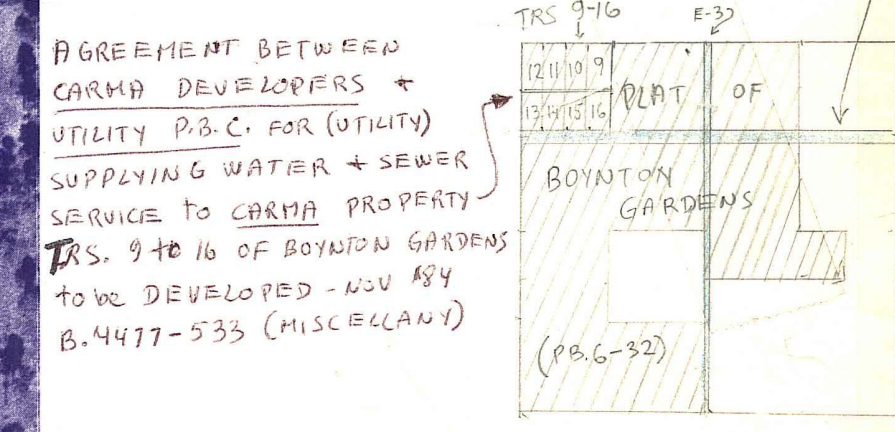 TRS 9-16
E-3
AGREEMENT BETWEEN
CARMA DEVELOPERS +
UTILITY P.B.C. FOR (UTILITY)
SUPPLYING WATER + SEWER
SERVICE to CARMA PROPERTY
TRS. 9 to 16 OF BOYNTON GARDENS
to be DEVELOPED - NOV '84
B.4477-533 (MISCELLANY)
12 11 10 9
13 14 15 16
PLAT OF
BOYNTON
GARDENS
(PB.6-32)